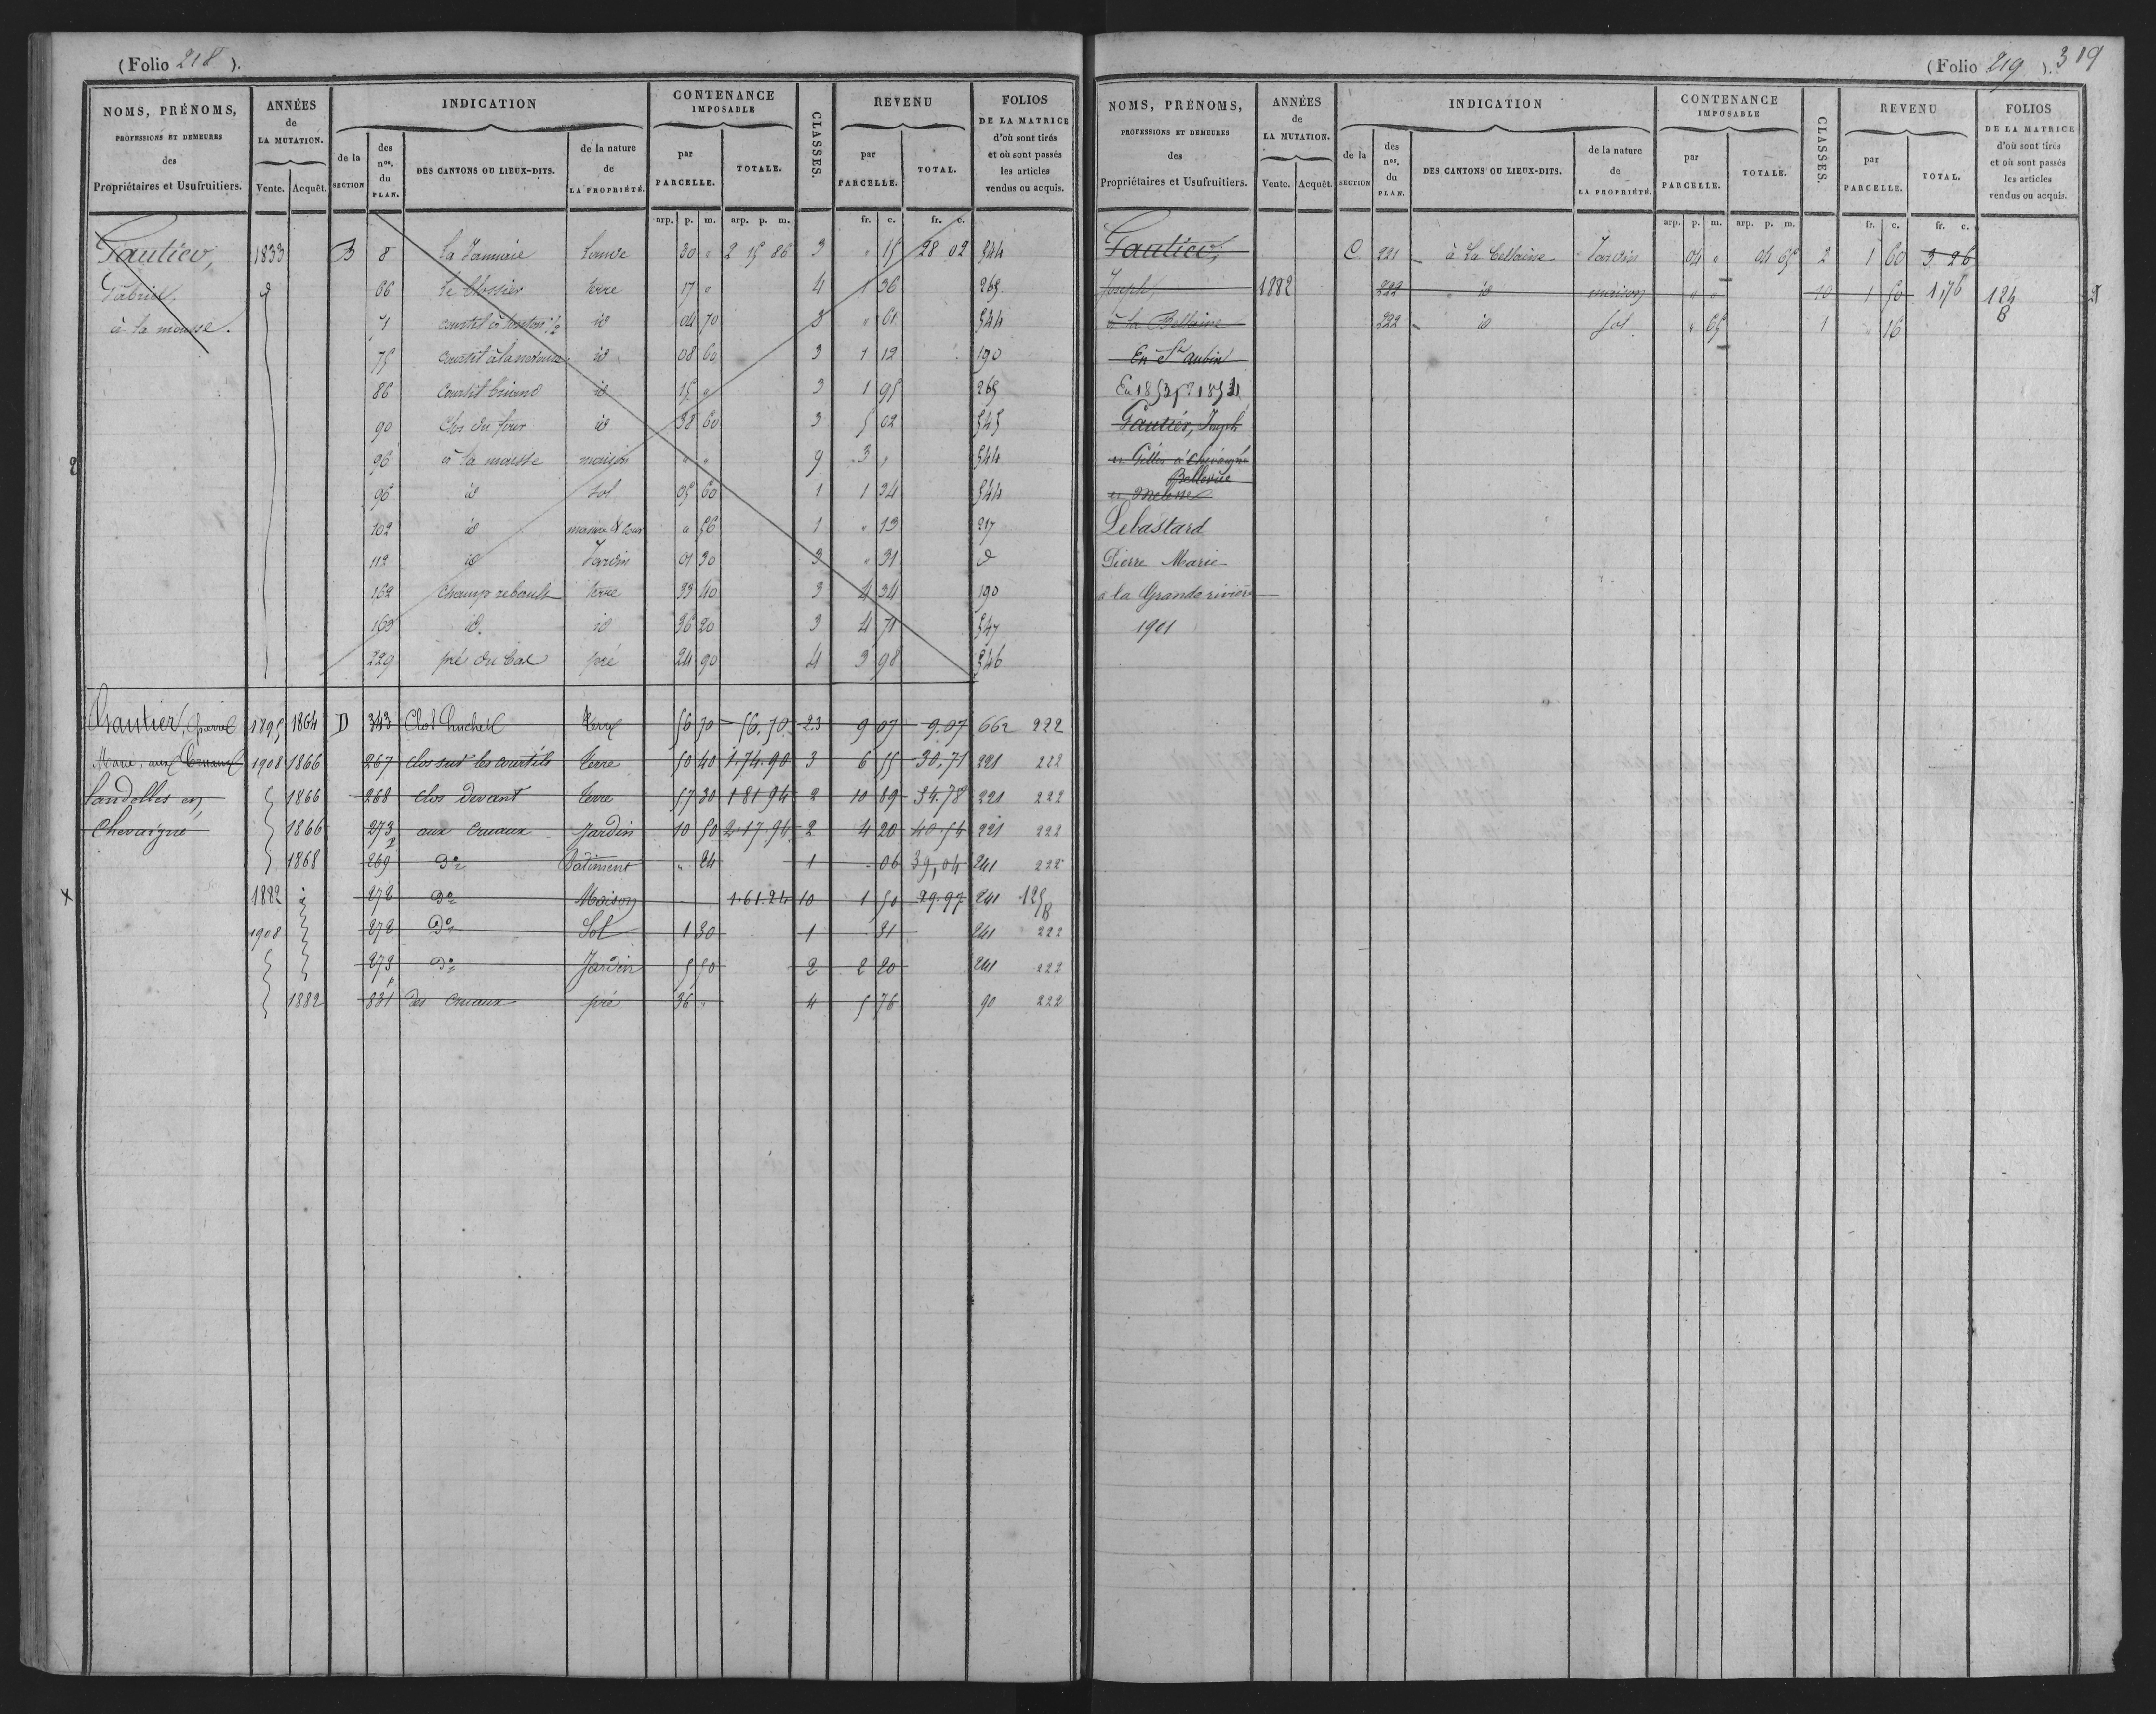 (Folio 218).
NOMS, PRÉNOMS, PROFESSIONS ET DEMEURES des Propriétaires et Usufruitiers.
ANNÉES de LA MUTATION. Vente. Acquêt.
INDICATION de la SECTION des nos. du PLAN. DES CANTONS OU LIEUX-DITS. de la nature de LA PROPRIÉTÉ.
CONTENANCE IMPOSABLE par PARCELLE. TOTALE.
CLASSES.
REVENU par PARCELLE. TOTAL.
FOLIOS DE LA MATRICE d'où sont tirés et où sont passés les articles vendus ou acquis.
arp. p. m. arp. p. m. fr. c. fr. c.
Gautier, 1833 B 8 La Jannaie Lande 30 " 2 15 86 3 " 15 28 02 544
Gabriel, d 66 Le Clossier terre 17 " 4 1 36 265
à la mousse. 71 courtil 1/2 id 04 70 3 " 61 544
75 courtil id 08 60 3 1 12 190
86 Courtil briand id 15 " 3 1 95 265
90 Clos du four id 38 60 3 5 02 545
96 à la mousse maison " " 9 3 " 544
96 id sol 05 60 1 1 34 544
102 id " 56 1 " 13 217
112 id Jardin 01 30 3 " 31 d
162 Champ rebault terre 33 40 3 4 34 190
163 id. id 36 20 3 4 71 547
229 pré du bas pré 24 90 4 3 98 546
Gautier, pierre 1895 1864 D 343 Clos huchet terre 56 70 56.70 23 9 07 9.07 662 222
Marie, aux 1908 1866 267 clos sur les courtils terre 50 40 1.74.90 3 6 55 30,71 221 222
Landelles en 1866 268 clos devant terre 57 30 1 81 94 2 10 89 34.78 221 222
Chevaigné 1866 273 aux cruaux Jardin 10 50 2.17.94 2 4 20 40.54 221 222
1868 269 do Batiment " 24 1 - 06 39,04 241 222
x 1882 272 do Maison 1.61.24 10 1 50 29.97 241 125 B
1908 272 do Sol 1 30 1 31 241 222
273 do Jardin 5 50 2 2 20 241 222
1882 831 des cruaux pré 36 " 4 5 76 90 222
(Folio 219). 319
NOMS, PRÉNOMS, PROFESSIONS ET DEMEURES des Propriétaires et Usufruitiers.
ANNÉES de LA MUTATION. Vente. Acquêt.
INDICATION de la SECTION des nos. du PLAN. DES CANTONS OU LIEUX-DITS. de la nature de LA PROPRIÉTÉ.
CONTENANCE IMPOSABLE par PARCELLE. TOTALE.
CLASSES.
REVENU par PARCELLE. TOTAL.
FOLIOS DE LA MATRICE d'où sont tirés et où sont passés les articles vendus ou acquis.
arp. p. m. arp. p. m. fr. c. fr. c.
Gautier, C 221 à la bellaine Jardin 04 " 04 05 2 1 60 3 26
Joseph, 1882 222 id maison " " 10 1 50 1,76 124 B
à la Bellaine 222 id sol " 05 1 " 16
En St aubin
Gautier, Joseph
en Gilles à chevaigné
Bellevue
en melesse
Lebastard
Pierre Marie
à la Grande rivière
1901